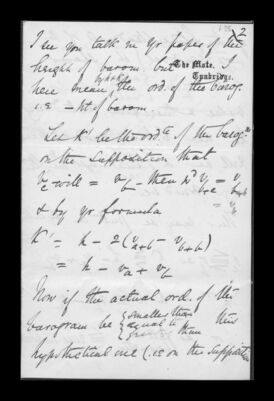 2
I see you talk in yr paper of the
The Mote,
Tunbridge.
height of barom. but I
by h & k
here mean the ord. of the barog.
i.e. – ht of barom.
Let K' be the ordte of the barogm
on the supposition that
v_c will = v_b – then wd v_{b+c} = v_{b+b}
& by yr formula
K' = h – 2(v_{a+b} – v_{b+b})
= h – v_a + v_b
Now if the actual ord. of the
smaller than
barogram be equal to this
greater than
hypothetical one (i.e. on the supposition